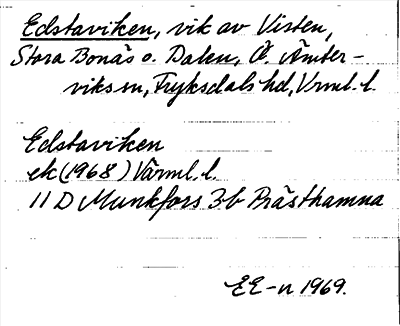 Edstaviken, vik av Visten,
Stora Bonäs o. Dalen, Ö. Ämter-
viks sn, Fryksdals hd, Vrml. l.
Edstaviken
ek (1968) Värml. l.
11 D Munkfors 3b Prästhamna
EE-n 1969.